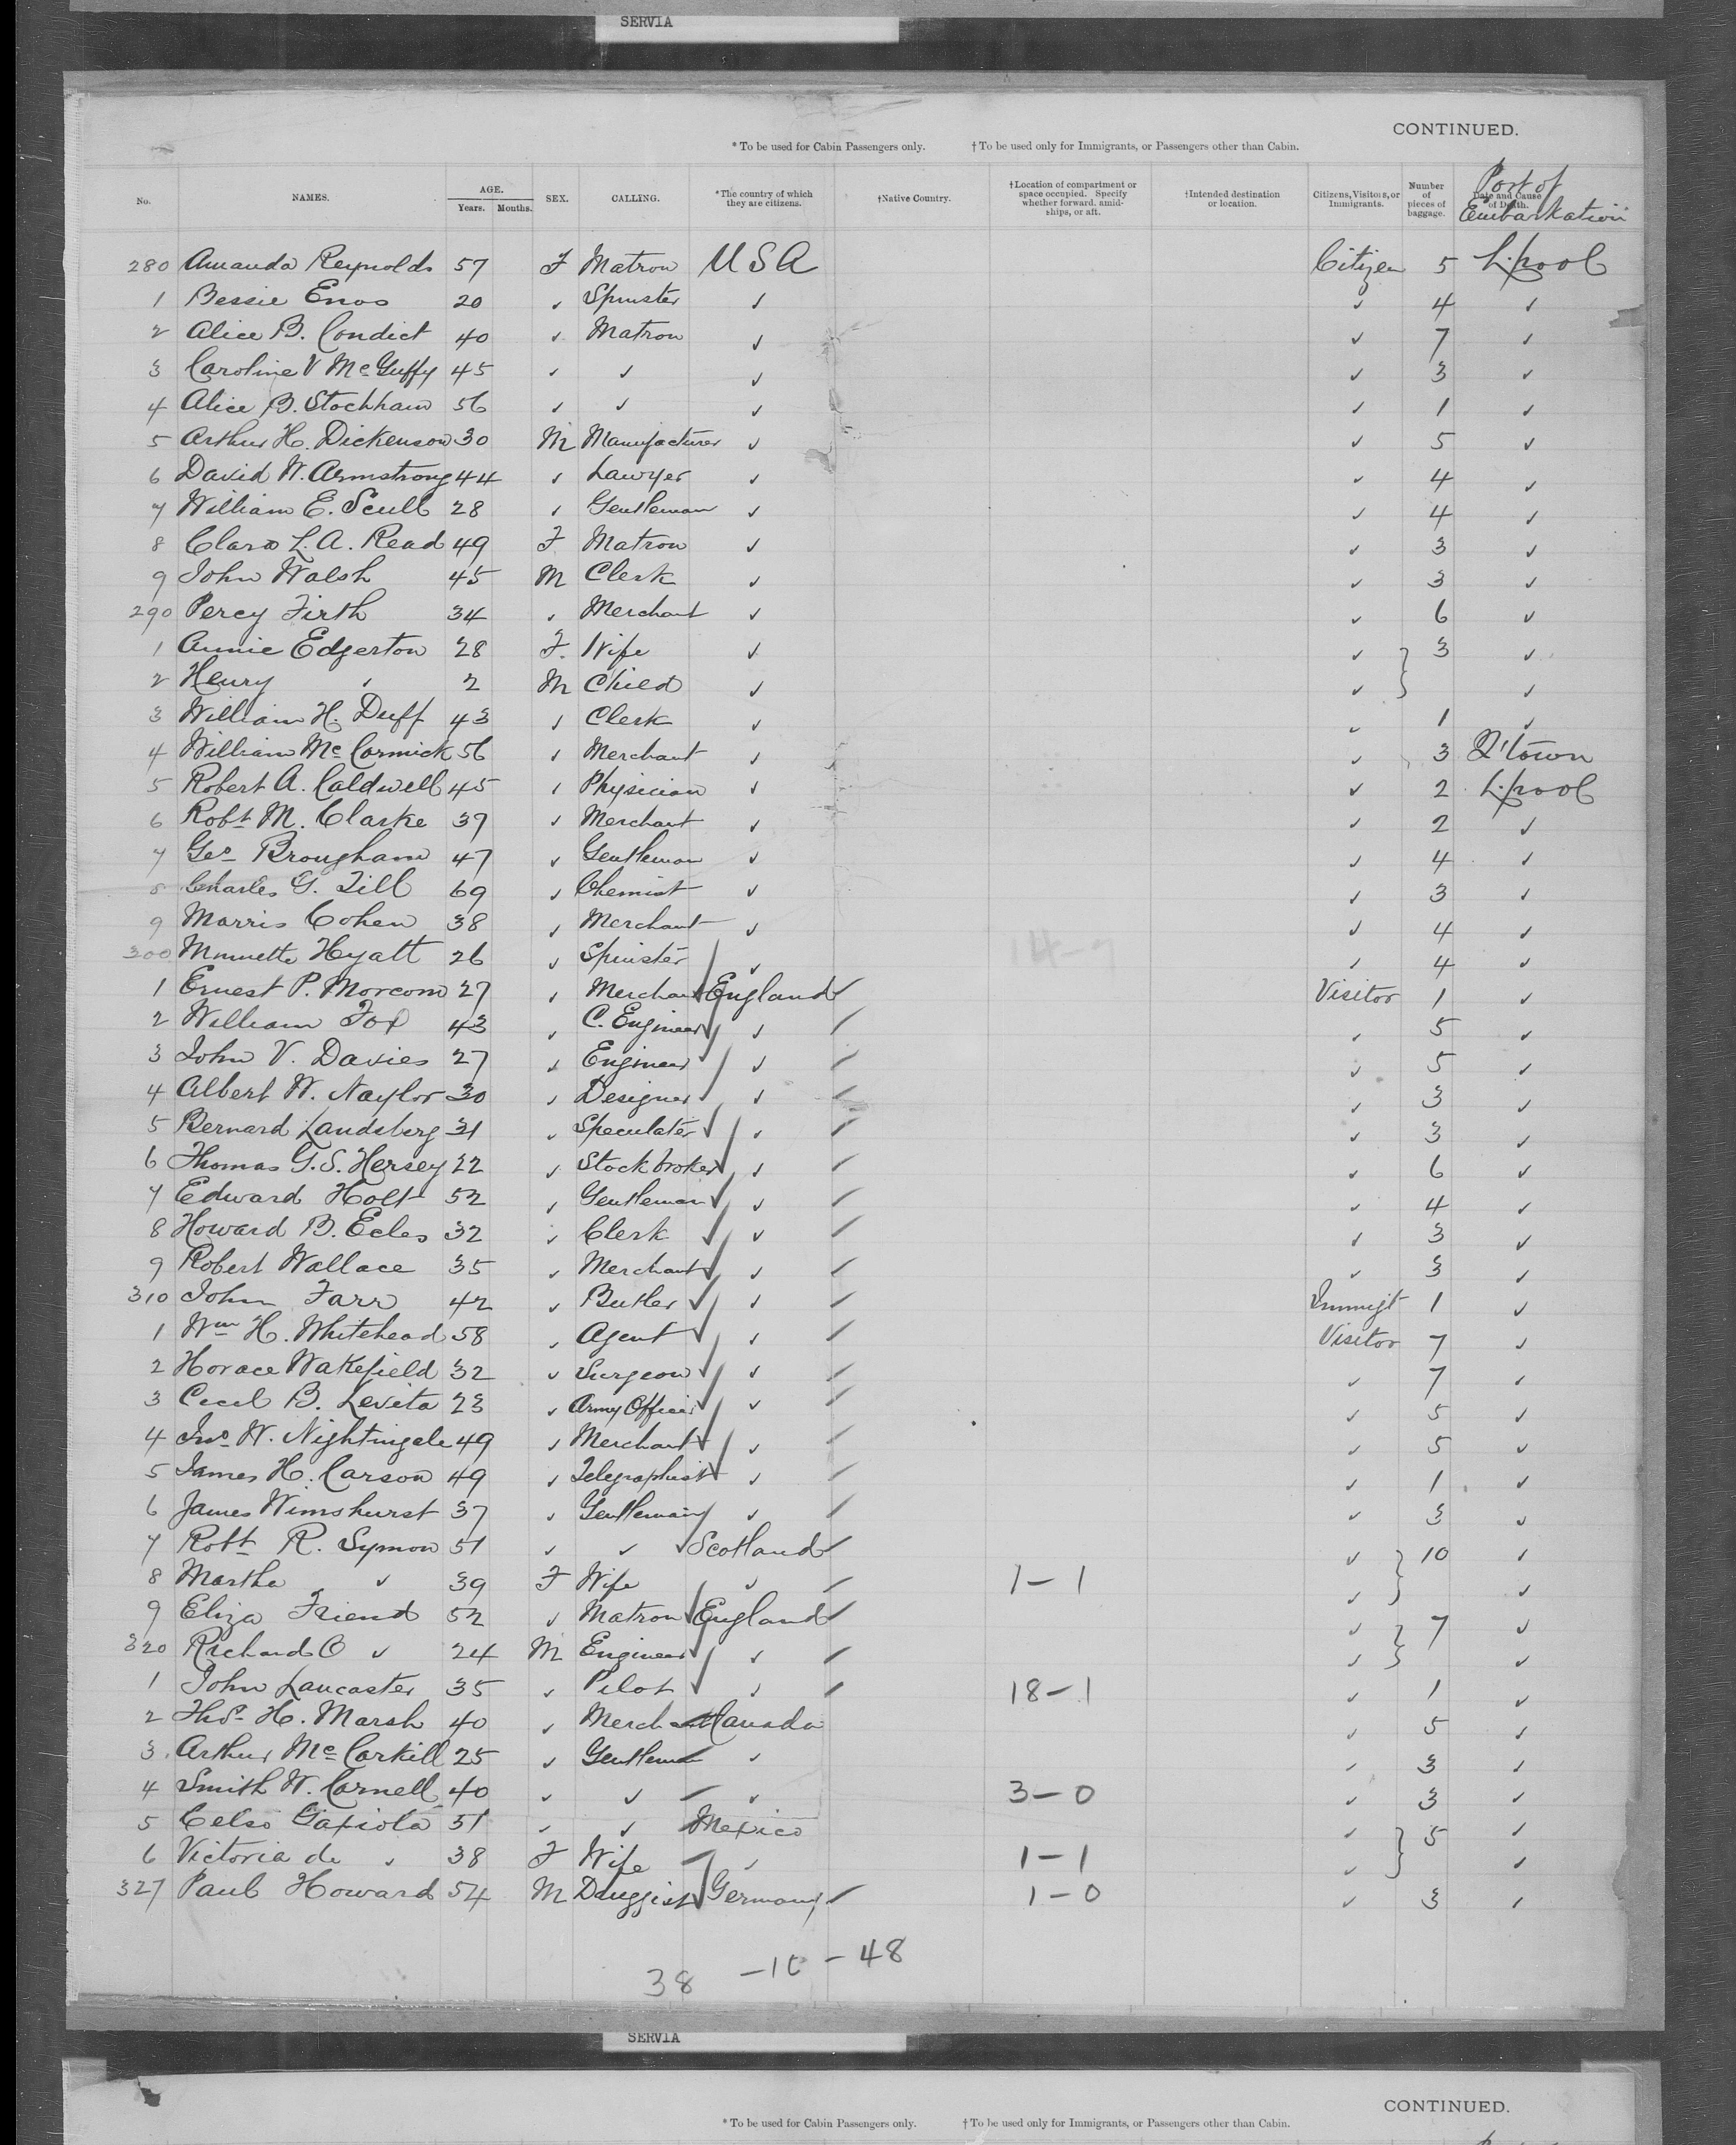 SERVIA
CONTINUED.
* To be used for Cabin Passengers only. † To be used only for Immigrants, or Passengers other than Cabin.
No. NAMES. AGE. Years. Months. SEX. CALLING. *The country of which they are citizens. †Native Country. †Location of compartment or space occupied. Specify whether forward, amidships, or aft. †Intended destination or location. Citizens, Visitors, or Immigrants. Number of pieces of baggage. Date and Cause of Death. Port of Embarkation
280 Amanda Reynolds 57 F Matron USA Citizen 5 L.pool
1 Bessie Enos 20 ✓ Spinster ✓ ✓ 4 ✓
2 Alice B. Condict 40 ✓ Matron ✓ ✓ 7 ✓
3 Caroline V McGuffy 45 ✓ ✓ ✓ ✓ 3 ✓
4 Alice B. Stockham 56 ✓ ✓ ✓ ✓ 1 ✓
5 Arthur H. Dickenson 30 M Manufacturer ✓ ✓ 5 ✓
6 David W. Armstrong 44 ✓ Lawyer ✓ ✓ 4 ✓
7 William E. Scull 28 ✓ Gentleman ✓ ✓ 4 ✓
8 Clara L. A. Read 49 F Matron ✓ ✓ 3 ✓
9 John Walsh 45 M Clerk ✓ ✓ 3 ✓
290 Percy Firth 34 ✓ Merchant ✓ ✓ 6 ✓
1 Annie Edgerton 28 F. Wife ✓ ✓ } 3 ✓
2 Henry ✓ 2 M Child ✓ ✓ ✓
3 William H. Duff 43 ✓ Clerk ✓ ✓ 1 ✓
4 William McCormick 56 ✓ Merchant ✓ ✓ 3 Q'town
5 Robert A. Caldwell 45 ✓ Physician ✓ ✓ 2 L.pool
6 Robt M. Clarke 39 ✓ Merchant ✓ ✓ 2 ✓
7 Geo Brougham 47 ✓ Gentleman ✓ ✓ 4 ✓
8 Charles G. Till 69 ✓ Chemist ✓ ✓ 3 ✓
9 Morris Cohen 38 ✓ Merchant ✓ ✓ 4 ✓
300 Minnette Hyatt 26 ✓ Spinster ✓ ✓ 4 ✓
1 Ernest P. Morcom 27 ✓ Merchant England ✓ Visitor 1 ✓
2 William Fox 43 ✓ C. Engineer ✓ ✓ 5 ✓
3 John V. Davies 27 ✓ Engineer ✓ ✓ 5 ✓
4 Albert W. Naylor 30 ✓ Designer ✓ ✓ 3 ✓
5 Bernard Landsberg 31 ✓ Speculater ✓ ✓ 3 ✓
6 Thomas G. S. Hersey 22 ✓ Stockbroker ✓ ✓ 6 ✓
7 Edward Holt 52 ✓ Gentleman ✓ ✓ 4 ✓
8 Howard B. Ecles 32 ✓ Clerk ✓ ✓ 3 ✓
9 Robert Wallace 35 ✓ Merchant ✓ ✓ 3 ✓
310 John Farr 42 ✓ Butler ✓ Immigt 1 ✓
1 Wm H. Whitehead 58 ✓ Agent ✓ Visitor 7 ✓
2 Horace Wakefield 32 ✓ Surgeon ✓ ✓ 7 ✓
3 Cecil B. Levita 23 ✓ Army Officer ✓ ✓ 5 ✓
4 Jno W. Nightingale 49 ✓ Merchant ✓ ✓ 5 ✓
5 James H. Carson 49 ✓ Telegraphist ✓ ✓ 1 ✓
6 James Wimshurst 37 ✓ Gentleman ✓ ✓ 3 ✓
7 Robt R. Symon 51 ✓ ✓ Scotland ✓ ✓ } 10 ✓
8 Martha ✓ 39 F Wife ✓ 1-1 ✓ ✓
9 Eliza Friend 52 ✓ Matron England ✓ ✓ } 7 ✓
320 Richard O ✓ 24 M Engineer ✓ ✓ ✓
1 John Lancaster 35 ✓ Pilot ✓ 18-1 ✓ 1 ✓
2 Thos. H. Marsh 40 ✓ Merchant Canada ✓ 5 ✓
3 Arthur McCorkill 25 ✓ Gentleman ✓ ✓ 3 ✓
4 Smith W. Cornell 40 ✓ ✓ ✓ 3-0 ✓ 3 ✓
5 Celso Gaxiola 51 ✓ ✓ Mexico ✓ } 5 ✓
6 Victoria de ✓ 38 F Wife ✓ 1-1 ✓ ✓
327 Paul Howard 54 M Druggist Germany ✓ 1-0 ✓ 3 ✓
38 -10 - 48
SERVIA
CONTINUED.
* To be used for Cabin Passengers only. † To be used only for Immigrants, or Passengers other than Cabin.